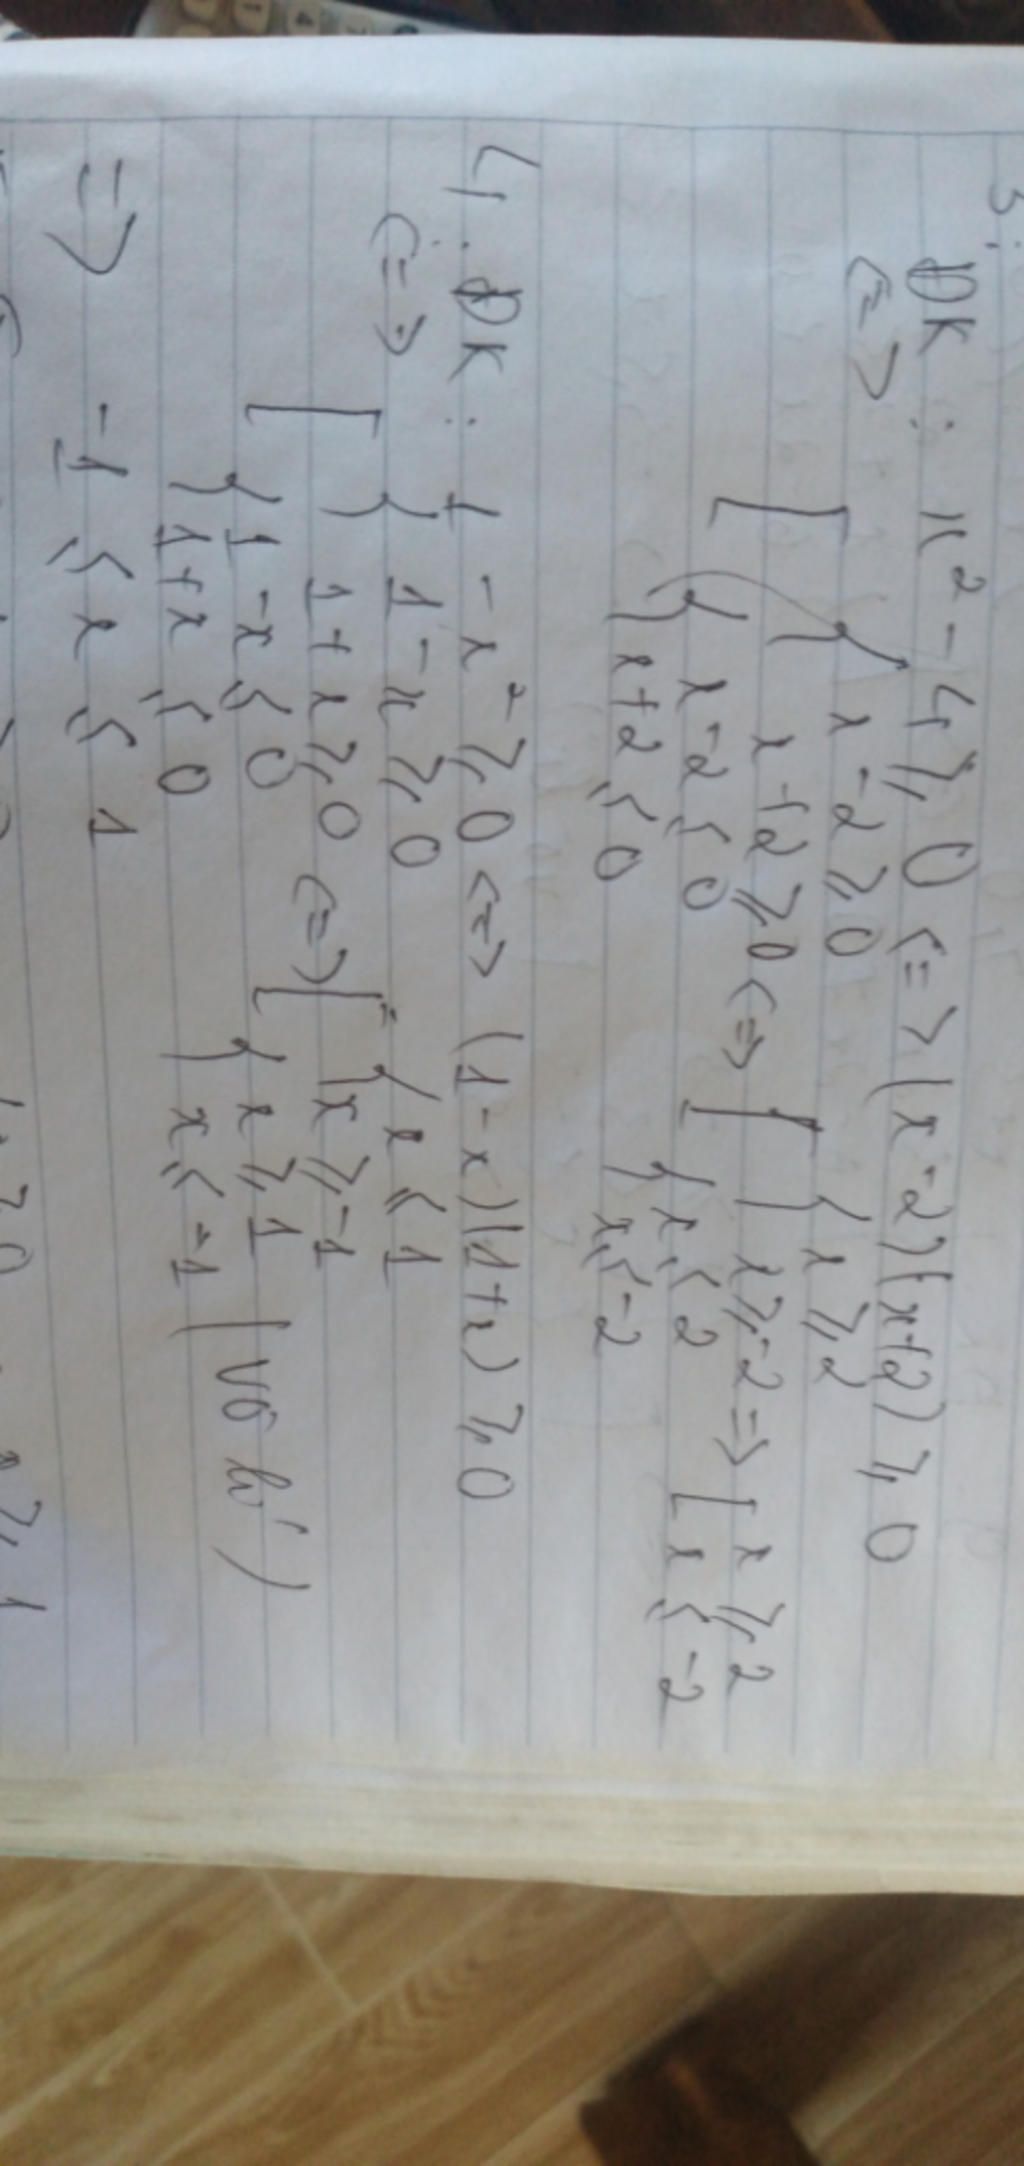 3:
ĐK : x² - 4 ≥ 0 <=> (x-2)(x+2) ≥ 0
<=> [ { x - 2 ≥ 0
x + 2 ≥ 0 <=> [ { x ≥ 2
x ≥ -2 => [ x ≥ 2
{ x - 2 ≤ 0
x + 2 ≤ 0
{ x ≤ 2
x ≤ -2
x ≤ -2
4: ĐK : 1 - x² ≥ 0 <=> (1-x)(1+x) ≥ 0
<=> [ { 1 - x ≥ 0
1 + x ≥ 0 <=> [ { x ≤ 1
x ≥ -1
{ 1 - x ≤ 0
1 + x ≤ 0
{ x ≥ 1
x ≤ -1 (vô lí)
=> -1 ≤ x ≤ 1